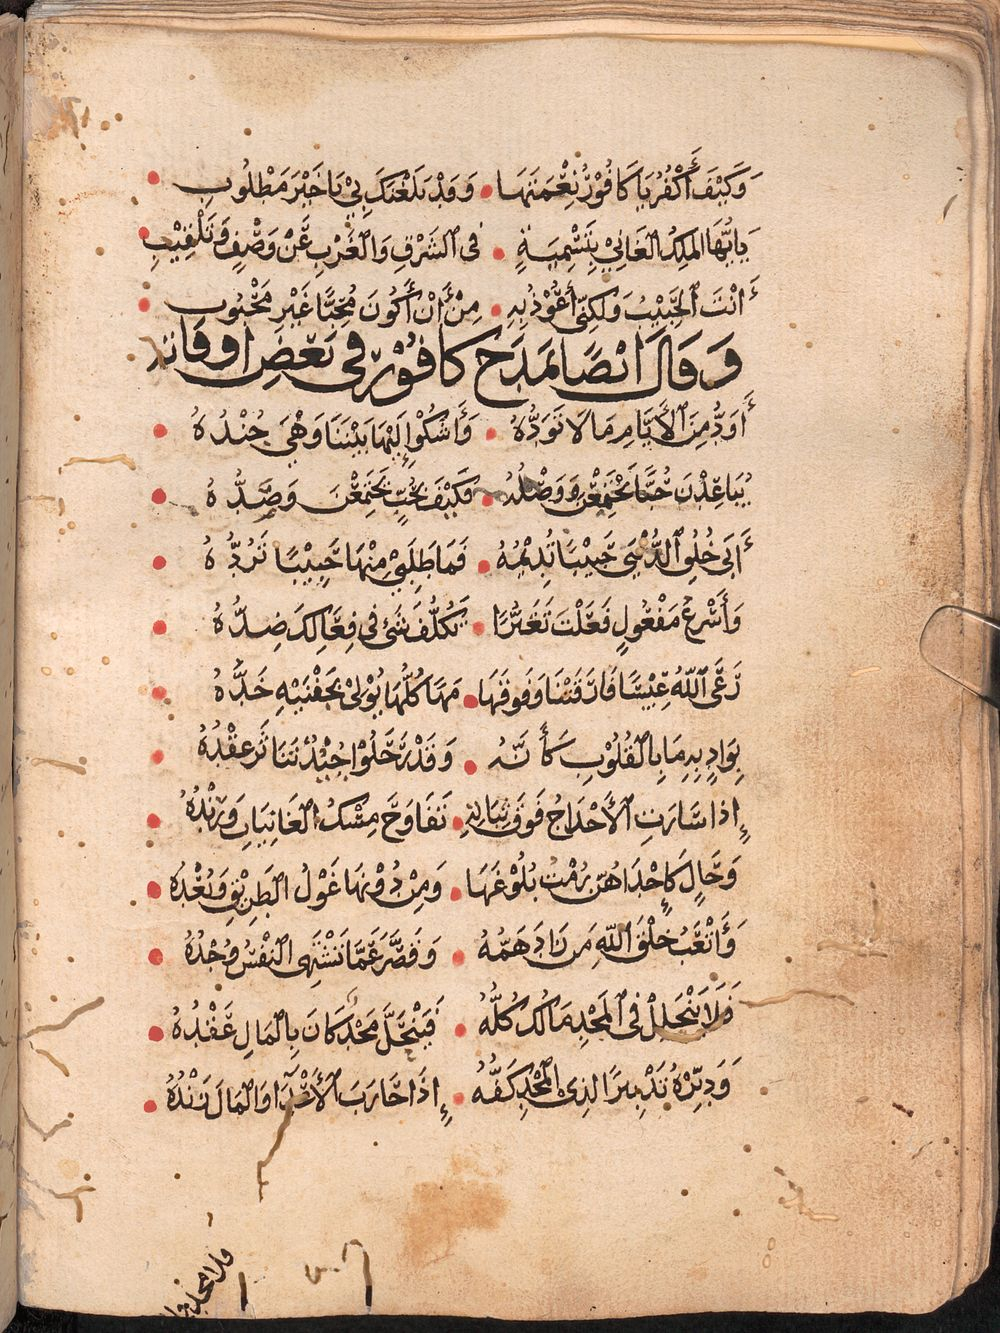 وَكَيْفَ أَكْفُرُ يَا كَافُوْرُ نِعْمَتَهَا • وَقَدْ بَلَغْنَكَ بِيْ يَا خَيْرَ مَطْلُوبِ •
يَايُّهَا المَلِكُ الْغَانِيْ بِتَسْمِيَةٍ • فى الشَرْقِ وَالْغَرْبِ عَنْ وَصْفٍ وَتَلْقِيْبِ •
أَنْتَ الْحَبِيْبُ وَلَكِنِّى أَعُوْذُ بِهِ • مِنْ أَنْ أَكُونَ مُحِبًّا غَيْرَ مَحْبُوبِ •
وَقَالَ ايْضًا يَمْدَح كَافُوْر فى بَعْضِ اوقَاته
أَوَدُّ مِنَ الْأَيَّامِ مَا لَا تَوَدُّهُ • وَأَشْكُوا إِلَيْهَا بَيْنَنَا وَهْىَ جُنْدُهُ •
يُبَاعِدْنَ حُبًّا يَجْتَمِعْنَ وَوَصْلُهُ • فَكَيْفَ بِحُبٍّ يَجْتَمِعْنَ وَصَدُّهُ •
أَبَى خُلُقُ الدُّنْيَى حَبِيْبًا تُدِيْمُهُ • فَمَا طَلَبِيْ مِنْهَا حَبِيْبًا تَرُدُّهُ •
وَأَسْرَعُ مَفْعُولٍ فَعَلْتَ تَغَيُّرًا • تَكَلُّفُ شَىْءٍ فى فِعَالِكَ ضِدُّهُ •
رَعَى اللّٰهُ عِيْسًا فَارَقَتْنَا وَفَوْقَهَا • مَهًا كُلُّهَا يُوْلِىْ بِجَفْنَيْهِ خَدُّهُ •
بِوَادٍ بِهِ مَا بِالْقُلُوْبِ كَأَنَّهُ • وَقَدْ رَحَلُوْا جِيْدٌ تَنَاثَرَ عِقْدُهُ •
إِذَا سَارَتِ الْأَحْدَاجُ فَوْقَ نَبَاتِهِ • تَفَاوَحَ مِسْكُ الْغَانِيَاتِ وَرَنْدُهُ •
وَحَالٍ كَإِحْدَاهُنَّ رُمْتُ بُلُوْغَهَا • وَمِنْ دُوْنِهَا غَوْلُ الطَرِيْقِ وَبُعْدُهُ •
وَأَتْعَبُ خَلْقِ اللّٰهِ مَن زَادَ هَمُّهُ • وَقَصَّرَ عَمَّا تَشْتَهِى النَفْسُ وُجْدُهُ •
فَلَا يَنْحَلِلْ فى الْمَجْدِ مَالُكَ كُلُّهُ • فَيَنْحَلَّ مَجْدٌ كَانَ بِالْمَالِ عَقْدُهُ •
وَدَبِّرْهُ تَدْبِيرَ الذِى الْمَجْدُ كَفُّهُ • إِذَا حَارَبَ الْأَعْدَآءَ وَالْمَالُ زَنْدُهُ •
فلا مجد